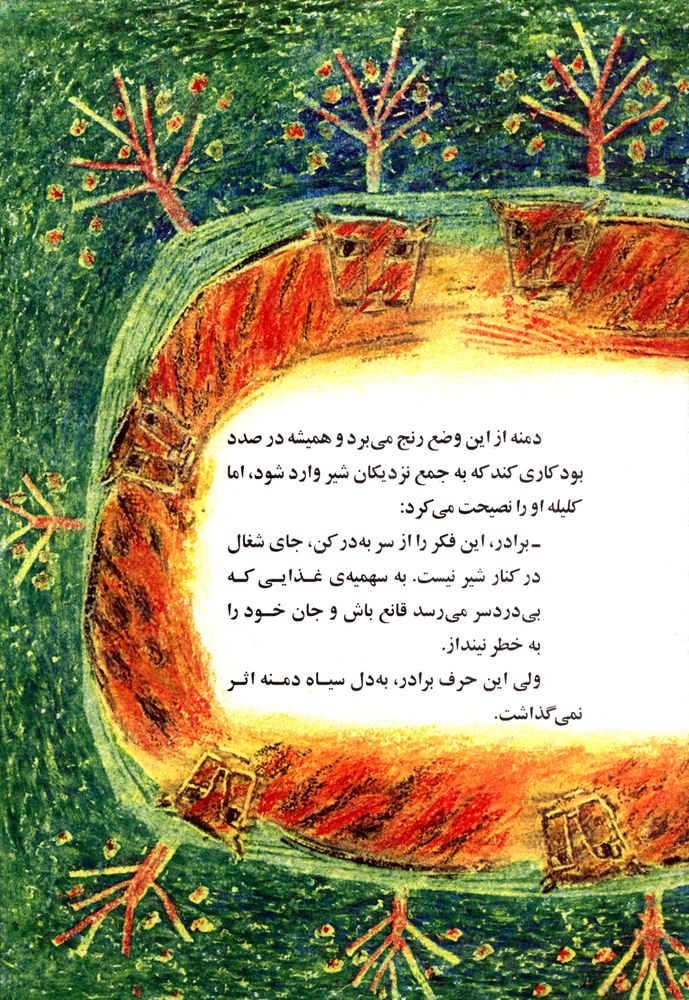 دمنه از این وضع رنج می‌برد و همیشه در صدد
بود کاری کند که به جمع نزدیکان شیر وارد شود، اما
کلیله او را نصیحت می‌کرد:
ـ برادر، این فکر را از سر به‌در کن، جای شغال
در کنار شیر نیست. به سهمیه‌ی غذایی که
بی‌دردسر می‌رسد قانع باش و جان خود را
به خطر نینداز.
ولی این حرف برادر، به‌دل سیاه دمنه اثر
نمی‌گذاشت.